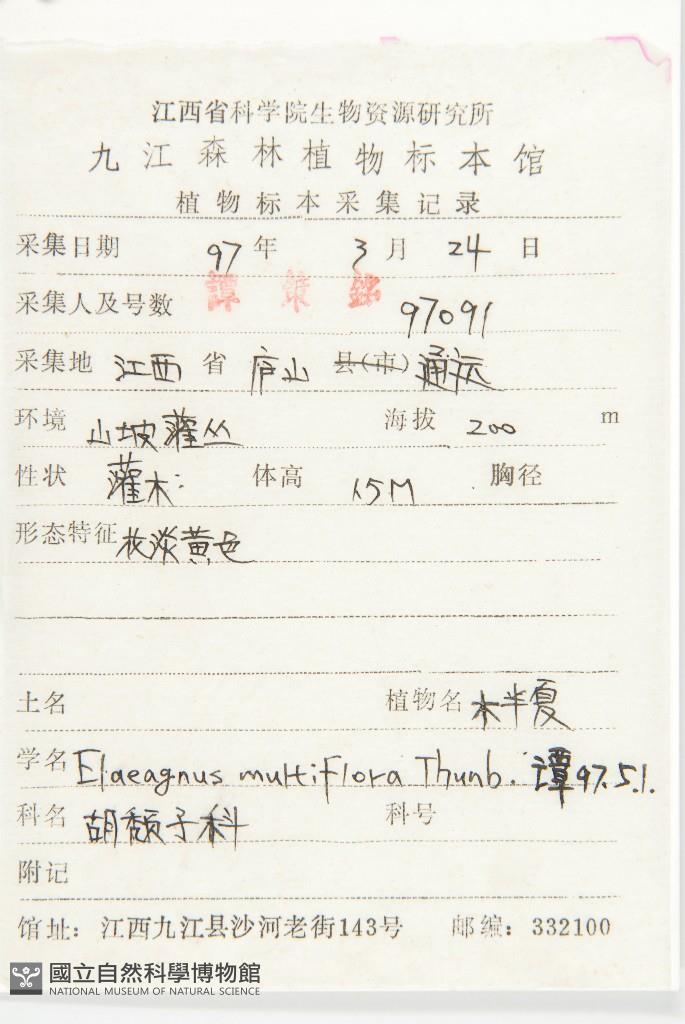 江西省科学院生物资源研究所
九江森林植物标本馆
植物标本采集记录
采集日期 97 年 3 月 24 日
采集人及号数 譚策銘 97091
采集地 江西 省 庐山 县(市) 通远
环境 山坡灌丛 海拔 200 m
性状 灌木: 体高 1.5M 胸径
形态特征 花淡黄色
土名 植物名 木半夏
学名 Elaeagnus multiflora Thunb. 谭97.5.1.
科名 胡颓子科 科号
附记
馆址: 江西九江县沙河老街143号 邮编: 332100
國立自然科學博物館
NATIONAL MUSEUM OF NATURAL SCIENCE